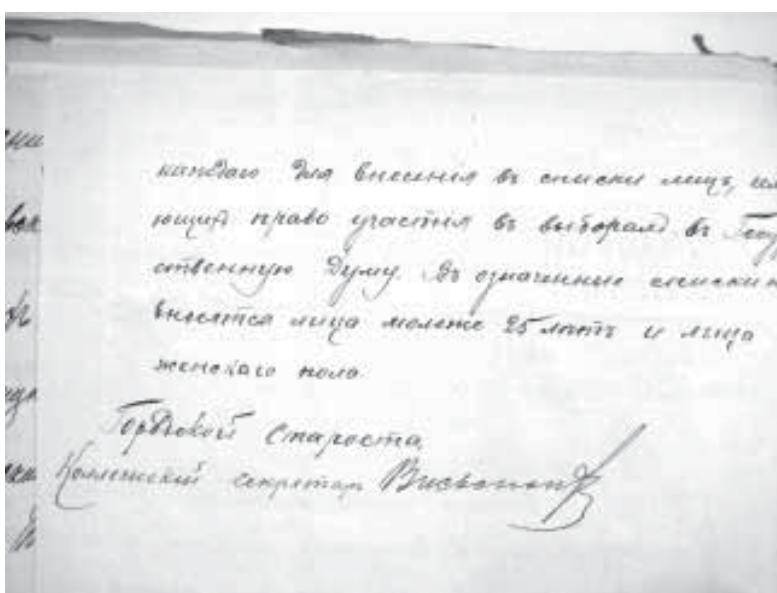 каждаго для внесенія въ списки лицъ, им
ющихъ право участія въ выборахъ въ Госу
ственную Думу. Въ означенные списки н
вносятся лица моложе 25 лѣтъ и лица
женскаго пола.
Староста,
секретарь